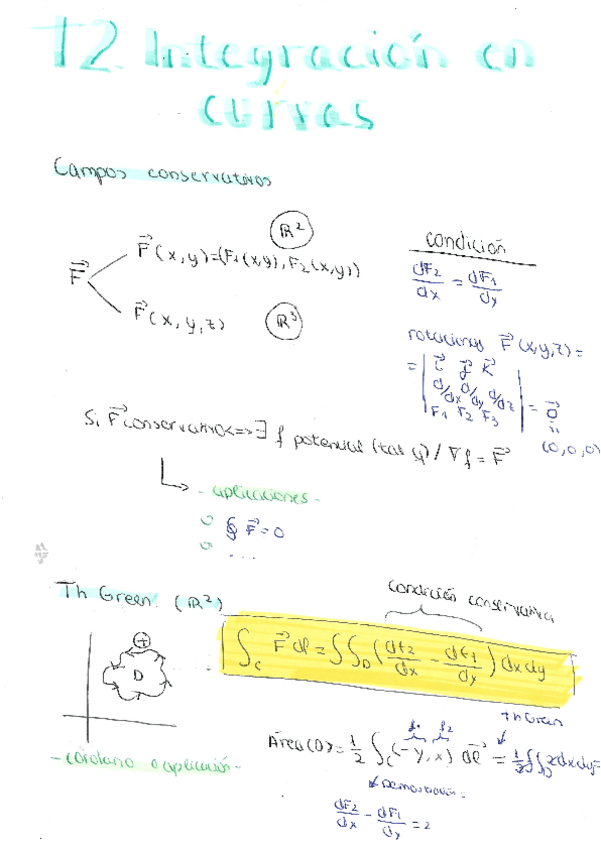 T2. Integración en
curvas
Campos conservativos
ℝ²
F⃗ (x,y)=(F₁(x,y), F₂(x,y))
F⃗
F⃗ (x,y,z)
ℝ³
condición
dF₂/dx = dF₁/dy
rotacional F⃗ (x,y,z) =
= | i⃗ j⃗ k⃗
d/dx d/dy d/dz
F₁ F₂ F₃ | = 0⃗
(0,0,0)
Si F⃗ conservativo <=> ∃ f potencial (tal q) / ∇f = F⃗
- aplicaciones -
∮ F⃗ = 0
...
Th Green. (ℝ²)
condición conservativa
∫_C F⃗ dl = ∫∫_D (dF₂/dx - dF₁/dy) dxdy
+
D
Th Green
f₁ f₂
Área(D) = 1/2 ∫_C (-y, x) dl⃗ = 1/2 ∫∫_D 2dxdy =
- corolario o aplicación -
Demostración:
dF₂/dx - dF₁/dy = 2